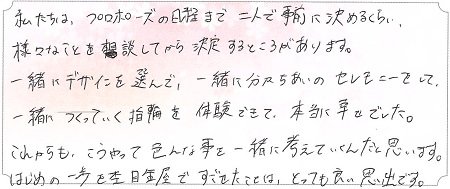 私たちは、プロポーズの日程まで二人で事前に決めるくらい、
様々なことを相談してから決定するところがあります。
一緒にデザインを選んで、一緒に分かちあいのセレモニーをして、
一緒につくっていく指輪を体験できて、本当に幸せでした。
これからも、こうやって色んな事を一緒に考えていくんだと思います。
はじめの一歩を杢目金屋ですごせたことは、とっても良い思い出です。